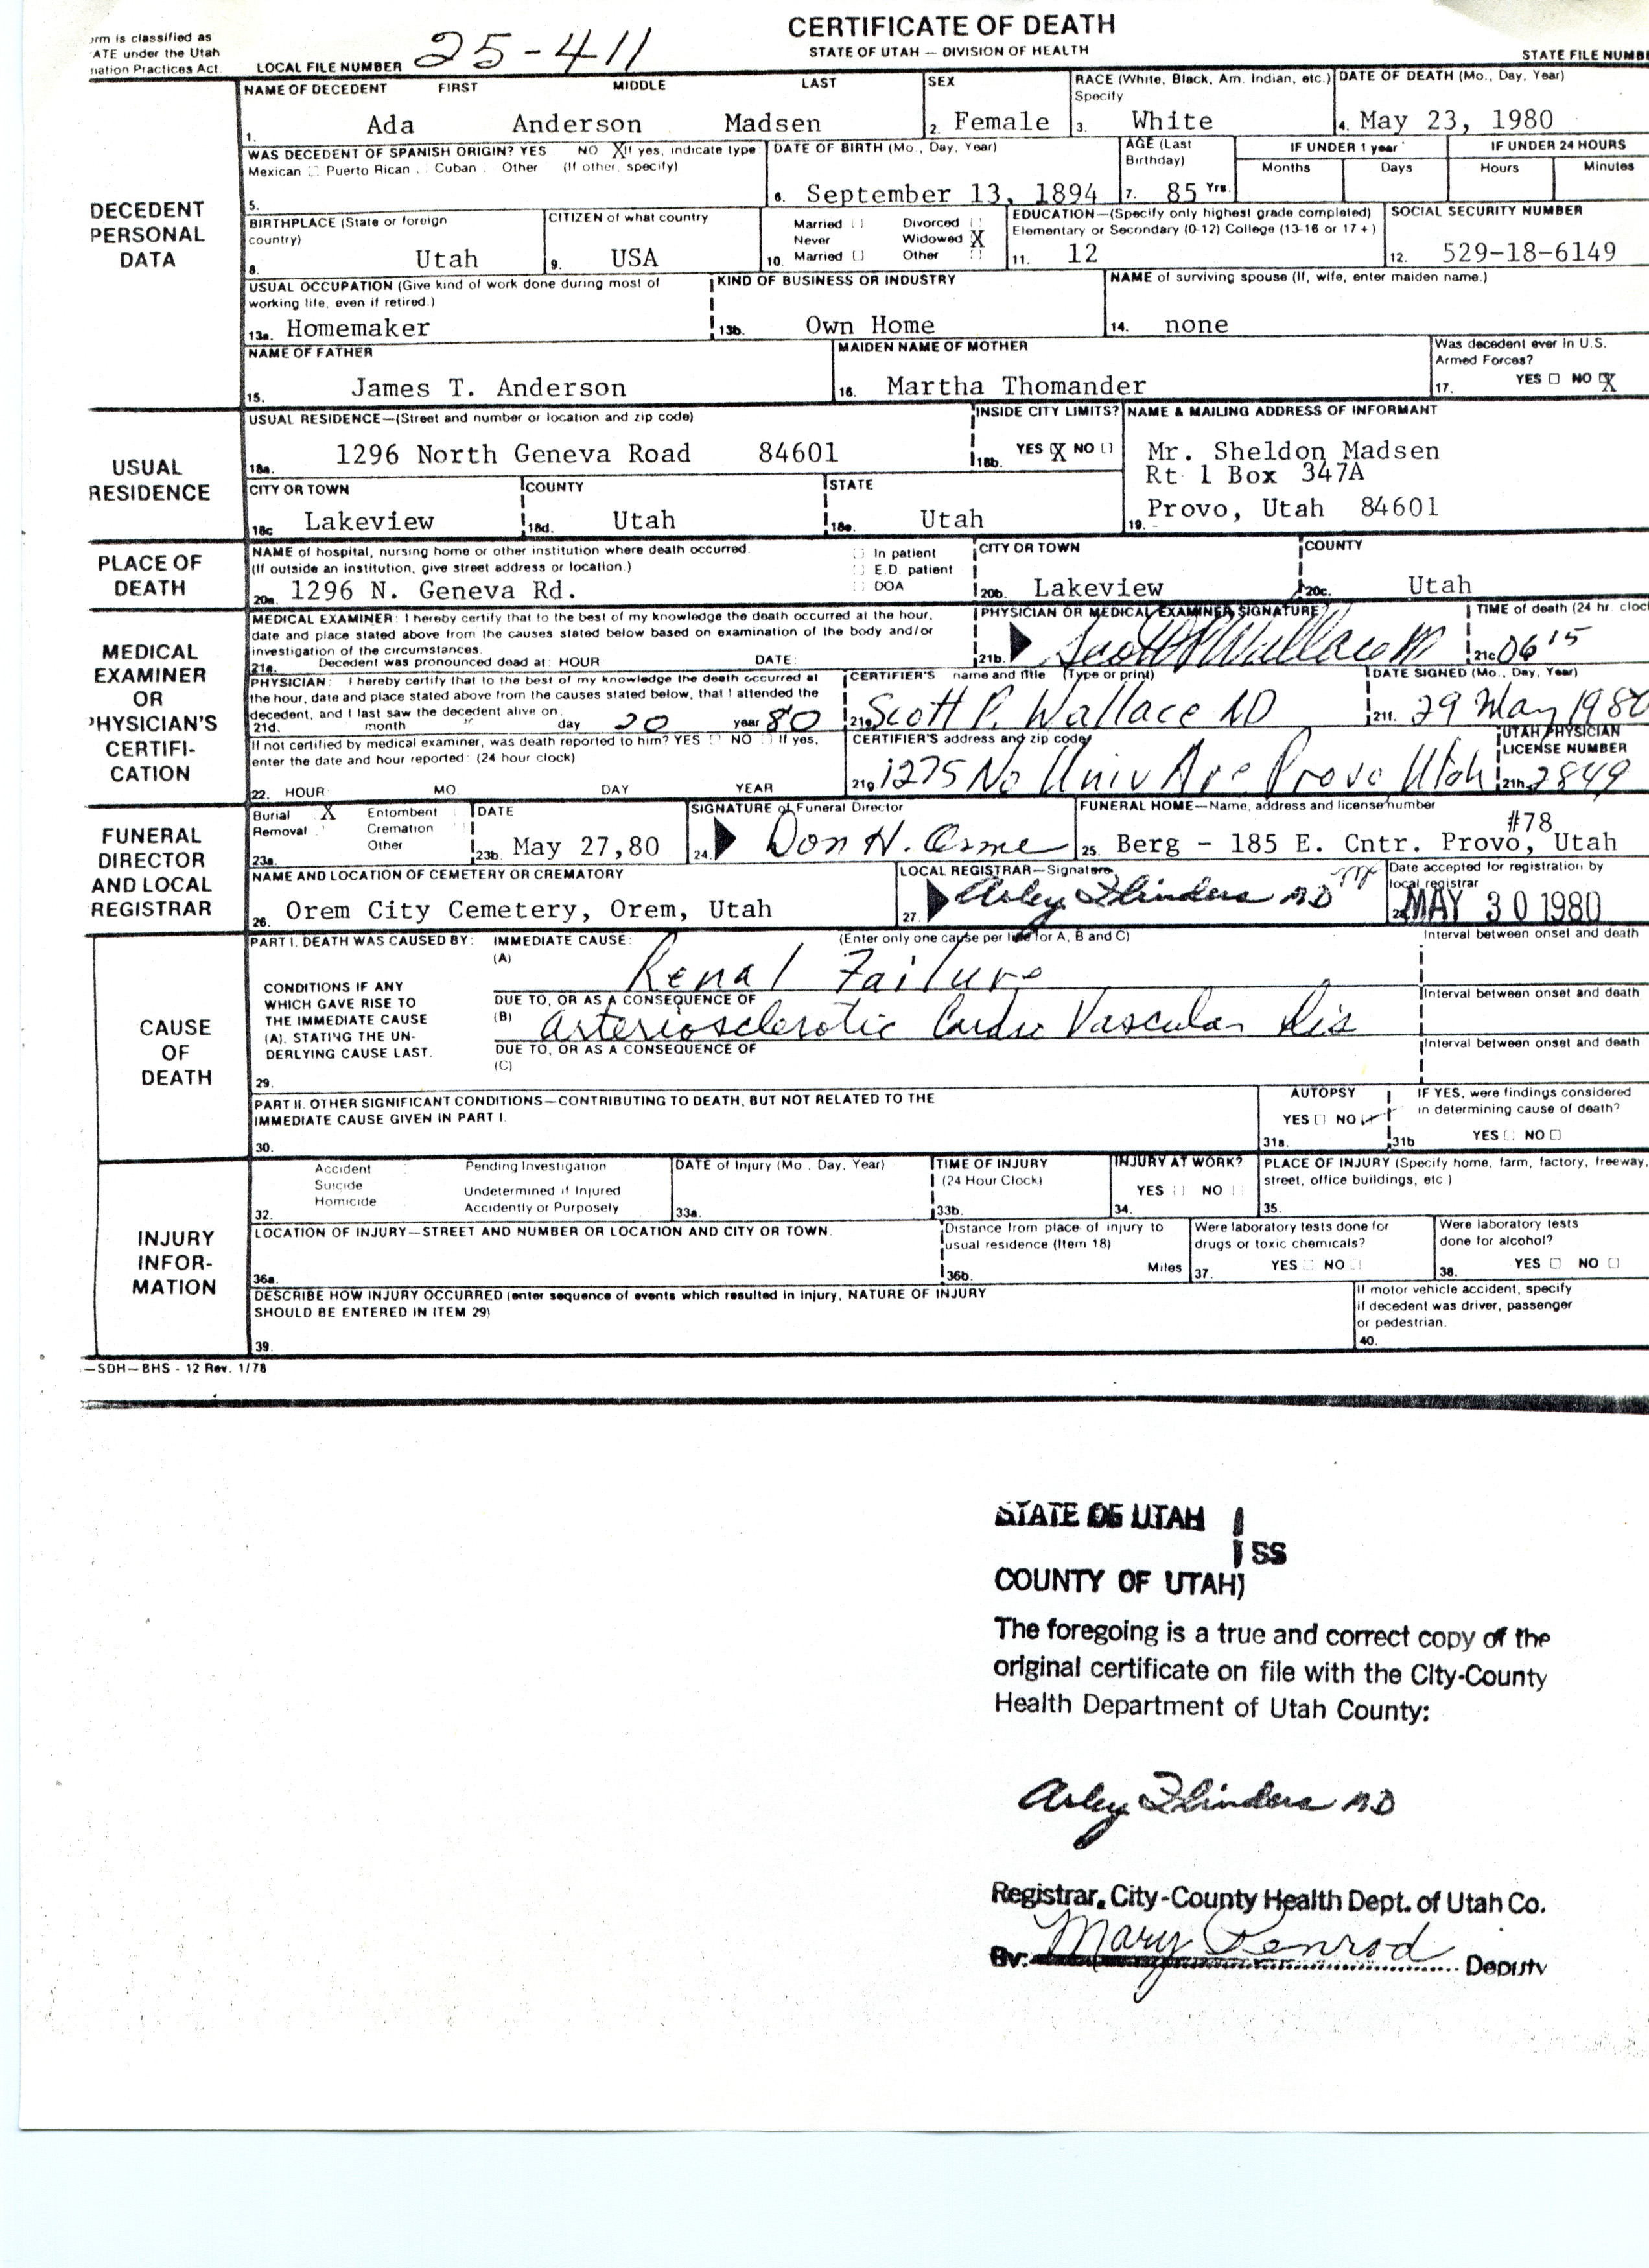 CERTIFICATE OF DEATH
STATE OF UTAH — DIVISION OF HEALTH
rm is classified as
ATE under the Utah
nation Practices Act
LOCAL FILE NUMBER 25-411
STATE FILE NUMB
DECEDENT PERSONAL DATA
NAME OF DECEDENT FIRST MIDDLE LAST
1. Ada Anderson Madsen
SEX
2. Female
RACE (White, Black, Am. Indian, etc.) Specify
3. White
DATE OF DEATH (Mo., Day, Year)
4. May 23, 1980
WAS DECEDENT OF SPANISH ORIGIN? YES NO X If yes, indicate type
Mexican Puerto Rican Cuban Other (If other, specify)
5.
DATE OF BIRTH (Mo., Day, Year)
6. September 13, 1894
AGE (Last Birthday)
7. 85 Yrs.
IF UNDER 1 year
Months Days
IF UNDER 24 HOURS
Hours Minutes
BIRTHPLACE (State or foreign country)
8. Utah
CITIZEN of what country
9. USA
Married Divorced
Never Widowed X
10. Married Other
EDUCATION—(Specify only highest grade completed)
Elementary or Secondary (0-12) College (13-16 or 17 +)
11. 12
SOCIAL SECURITY NUMBER
12. 529-18-6149
USUAL OCCUPATION (Give kind of work done during most of
working life, even if retired.)
13a. Homemaker
KIND OF BUSINESS OR INDUSTRY
13b. Own Home
NAME of surviving spouse (If, wife, enter maiden name.)
14. none
NAME OF FATHER
15. James T. Anderson
MAIDEN NAME OF MOTHER
16. Martha Thomander
Was decedent ever in U.S.
Armed Forces?
17. YES NO X
USUAL RESIDENCE
USUAL RESIDENCE—(Street and number or location and zip code)
18a. 1296 North Geneva Road 84601
INSIDE CITY LIMITS?
18b. YES X NO
NAME & MAILING ADDRESS OF INFORMANT
Mr. Sheldon Madsen
Rt 1 Box 347A
19. Provo, Utah 84601
CITY OR TOWN
18c Lakeview
COUNTY
18d. Utah
STATE
18e. Utah
PLACE OF DEATH
NAME of hospital, nursing home or other institution where death occurred.
(If outside an institution, give street address or location.)
20a. 1296 N. Geneva Rd.
In patient
E.D. patient
DOA
CITY OR TOWN
20b. Lakeview
COUNTY
20c. Utah
MEDICAL EXAMINER OR HYSICIAN'S CERTIFI- CATION
MEDICAL EXAMINER: I hereby certify that to the best of my knowledge the death occurred at the hour,
date and place stated above from the causes stated below based on examination of the body and/or
investigation of the circumstances.
21a. Decedent was pronounced dead at: HOUR DATE:
PHYSICIAN OR MEDICAL EXAMINER SIGNATURE
21b. Scott P Wallace M
TIME of death (24 hr. cloc
21c 0615
PHYSICIAN: I hereby certify that to the best of my knowledge the death occurred at
the hour, date and place stated above from the causes stated below, that I attended the
decedent, and I last saw the decedent alive on:
21d. month day 20 year 80
CERTIFIER'S name and title (Type or print)
21e Scott P. Wallace MD
DATE SIGNED (Mo., Day, Year)
21f. 29 May 1980
If not certified by medical examiner, was death reported to him? YES NO If yes,
enter the date and hour reported: (24 hour clock)
22. HOUR MO. DAY YEAR
CERTIFIER'S address and zip code
21g 1275 No Univ Ave Provo Utah
UTAH PHYSICIAN
LICENSE NUMBER
21h. 2849
FUNERAL DIRECTOR AND LOCAL REGISTRAR
Burial X Entombent
Removal Cremation
Other
23a.
DATE
23b. May 27,80
SIGNATURE of Funeral Director
24. Don H. Orme
FUNERAL HOME—Name, address and license number
#78
25. Berg - 185 E. Cntr. Provo, Utah
NAME AND LOCATION OF CEMETERY OR CREMATORY
26. Orem City Cemetery, Orem, Utah
LOCAL REGISTRAR—Signature
27. Arley Flinders MD
Date accepted for registration by
local registrar
MAY 30 1980
CAUSE OF DEATH
PART I. DEATH WAS CAUSED BY: IMMEDIATE CAUSE: (Enter only one cause per line for A, B and C)
(A) Renal Failure
Interval between onset and death
CONDITIONS IF ANY
WHICH GAVE RISE TO
THE IMMEDIATE CAUSE
(A). STATING THE UN-
DERLYING CAUSE LAST.
DUE TO, OR AS A CONSEQUENCE OF
(B) Arteriosclerotic Cardio Vascular Dis
Interval between onset and death
DUE TO, OR AS A CONSEQUENCE OF
(C)
Interval between onset and death
29.
PART II. OTHER SIGNIFICANT CONDITIONS—CONTRIBUTING TO DEATH, BUT NOT RELATED TO THE
IMMEDIATE CAUSE GIVEN IN PART I.
30.
AUTOPSY
YES NO
31a.
IF YES, were findings considered
in determining cause of death?
31b YES NO
INJURY INFOR- MATION
Accident Pending Investigation
Suicide Undetermined if Injured
Homicide Accidently or Purposely
32.
DATE of Injury (Mo., Day, Year)
33a.
TIME OF INJURY
(24 Hour Clock)
33b.
INJURY AT WORK?
YES NO
34.
PLACE OF INJURY (Specify home, farm, factory, freeway,
street, office buildings, etc.)
35.
LOCATION OF INJURY—STREET AND NUMBER OR LOCATION AND CITY OR TOWN
36a.
Distance from place of injury to
usual residence (Item 18)
36b. Miles
Were laboratory tests done for
drugs or toxic chemicals?
37. YES NO
Were laboratory tests
done for alcohol?
38. YES NO
DESCRIBE HOW INJURY OCCURRED (enter sequence of events which resulted in Injury, NATURE OF INJURY
SHOULD BE ENTERED IN ITEM 29)
39.
If motor vehicle accident, specify
if decedent was driver, passenger
or pedestrian.
40.
—SDH—BHS - 12 Rev. 1/78
STATE OF UTAH )
) SS
COUNTY OF UTAH)
The foregoing is a true and correct copy of the
original certificate on file with the City-County
Health Department of Utah County:
Arley Flinders MD
Registrar, City-County Health Dept. of Utah Co.
By: Mary Penrod Deputy